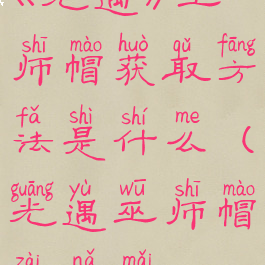 《光遇》巫
shī mào huò qǔ fāng
师帽获取方
fǎ shì shí me
法是什么（
guāng yù wū shī mào
光遇巫师帽
zài nǎ mǎi